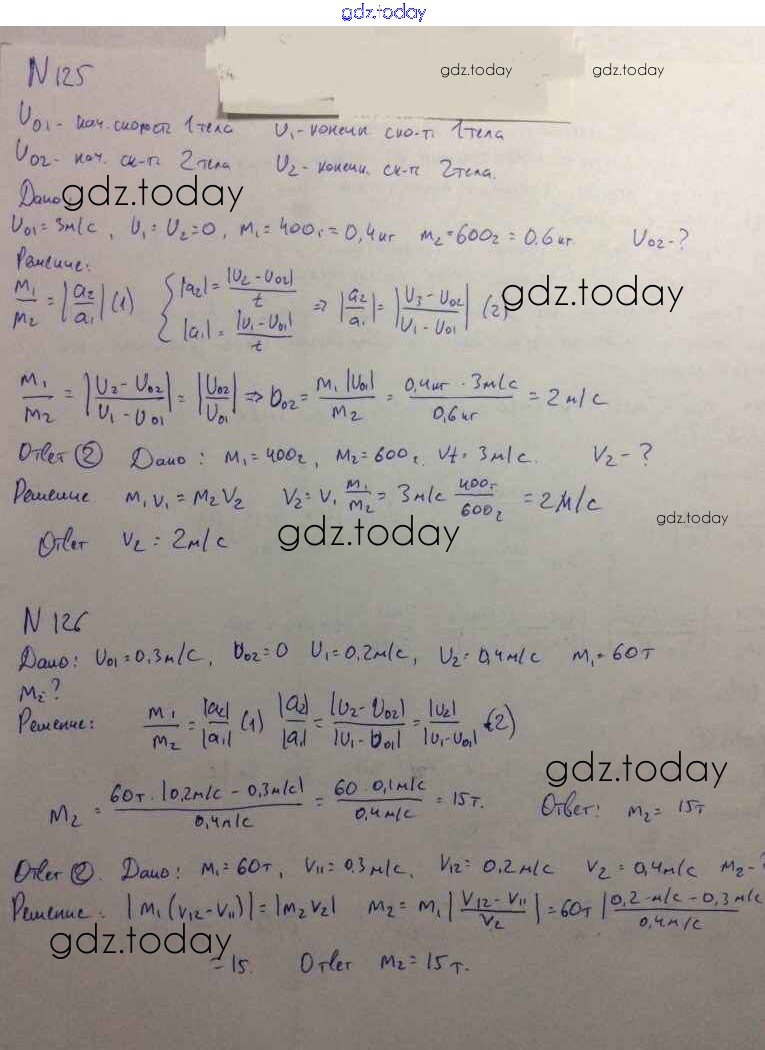 gdz.today
N 125
gdz.today gdz.today
U₀₁ - нач. скорость 1 тела U₁ - конечн. ско-ть 1 тела
U₀₂ - нач. ск-ть 2 тела U₂ - конечн. ск-ть 2 тела.
Дано
gdz.today
U₀₁ = 3м/с, U₁ = U₂ = 0, m₁ = 400г = 0,4кг m₂ = 600г = 0.6кг. U₀₂ - ?
Решение:
m₁/m₂ = |a₂/a₁| (1) { |a₂| = |U₂ - U₀₂|/t |a₁| = |U₁ - U₀₁|/t ⇒ |a₂/a₁| = |U₃ - U₀₂/U₁ - U₀₁| (2)
gdz.today
m₁/m₂ = |U₂ - U₀₂/U₁ - U₀₁| = |U₀₂/U₀₁| ⇒ U₀₂ = m₁|U₀₁|/m₂ = 0,4кг · 3м/с/0,6кг = 2м/с
Ответ ② Дано: m₁ = 400г, m₂ = 600г. V₁ = 3м/с. V₂ - ?
Решение m₁v₁ = m₂V₂ V₂ = V₁ m₁/m₂ = 3м/с 400г/600г = 2м/с
gdz.today
Ответ V₂ = 2м/с
gdz.today
N 126
Дано: U₀₁ = 0,3м/с, U₀₂ = 0 U₁ = 0,2м/с, U₂ = 0,4м/с m₁ = 60т
m₂ - ?
Решение: m₁/m₂ = |a₂|/|a₁| (1) |a₂|/|a₁| = |U₂ - U₀₂|/|U₁ - U₀₁| = |U₂|/|U₁ - U₀₁| (2)
gdz.today
m₂ = 60т · |0,2м/с - 0,3м/с|/0,4м/с = 60 · 0,1м/с/0,4м/с = 15т. Ответ: m₂ = 15т
Ответ ②. Дано: m₁ = 60т, V₁₁ = 0.3м/с, V₁₂ = 0,2м/с V₂ = 0,4м/с m₂ - ?
Решение: |m₁(V₁₂ - V₁₁)| = |m₂V₂| m₂ = m₁|V₁₂ - V₁₁/V₂| = 60т |0,2м/с - 0,3м/с/0,4м/с
gdz.today
= 15. Ответ m₂ = 15т.